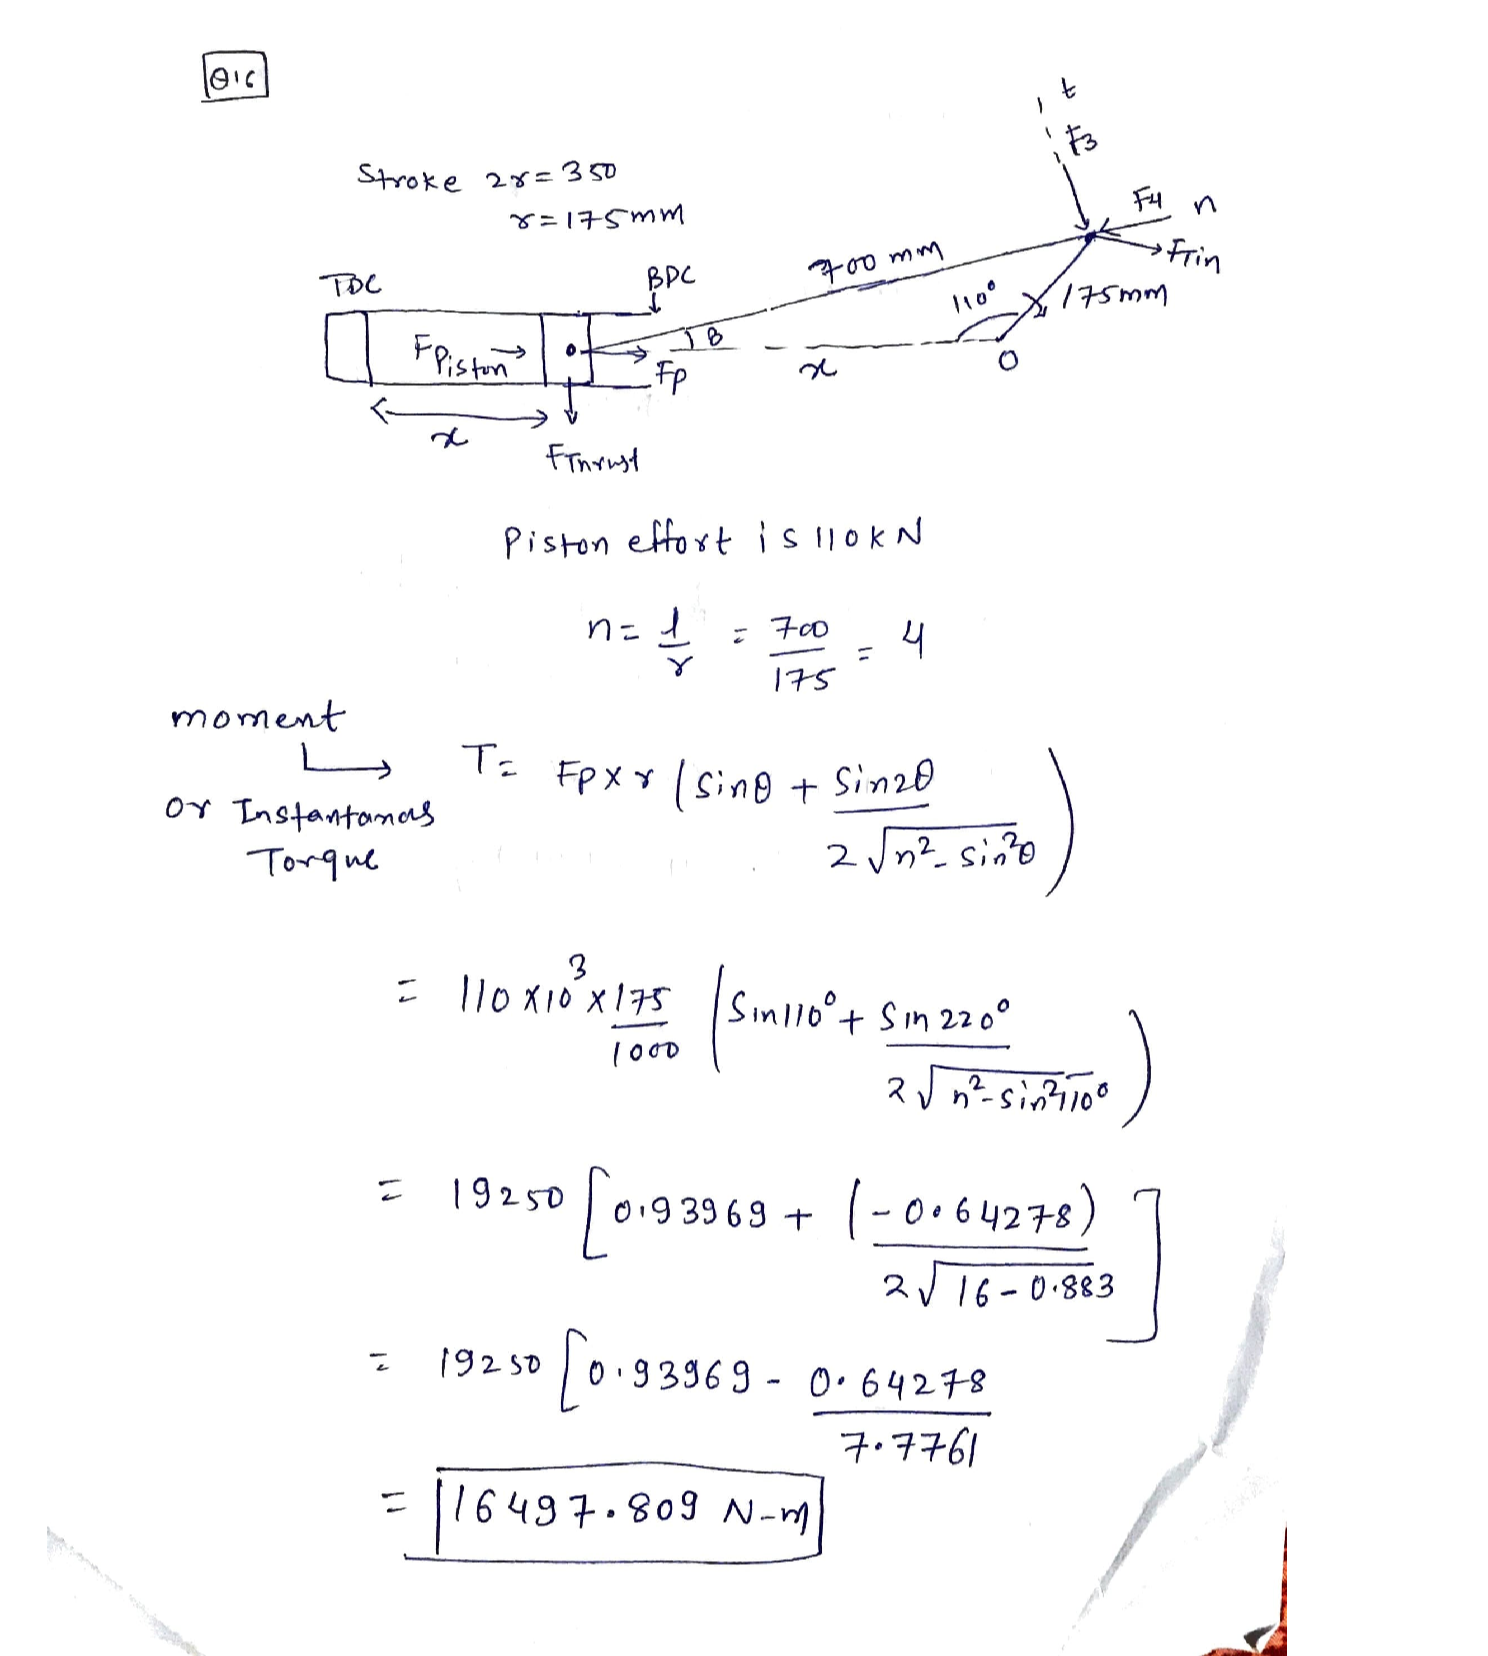 Q16
Stroke 2r = 350
r = 175mm
t
F3
F4 n
FTin
TDC
BDC
700 mm
110°
175mm
FPiston
β
FP
x
O
x
FThrust
Piston effort is 110 kN
n = l/r = 700/175 = 4
moment
or Instantanas
Torque
T = Fp x r (sinθ + sin2θ / 2√n² - sin²θ)
= 110 x 10³ x 175/1000 (sin110° + sin 220° / 2√n² - sin²110°)
= 19250 [0.93969 + (-0.64278) / 2√16 - 0.883]
= 19250 [0.93969 - 0.64278 / 7.7761
= 16497.809 N-m